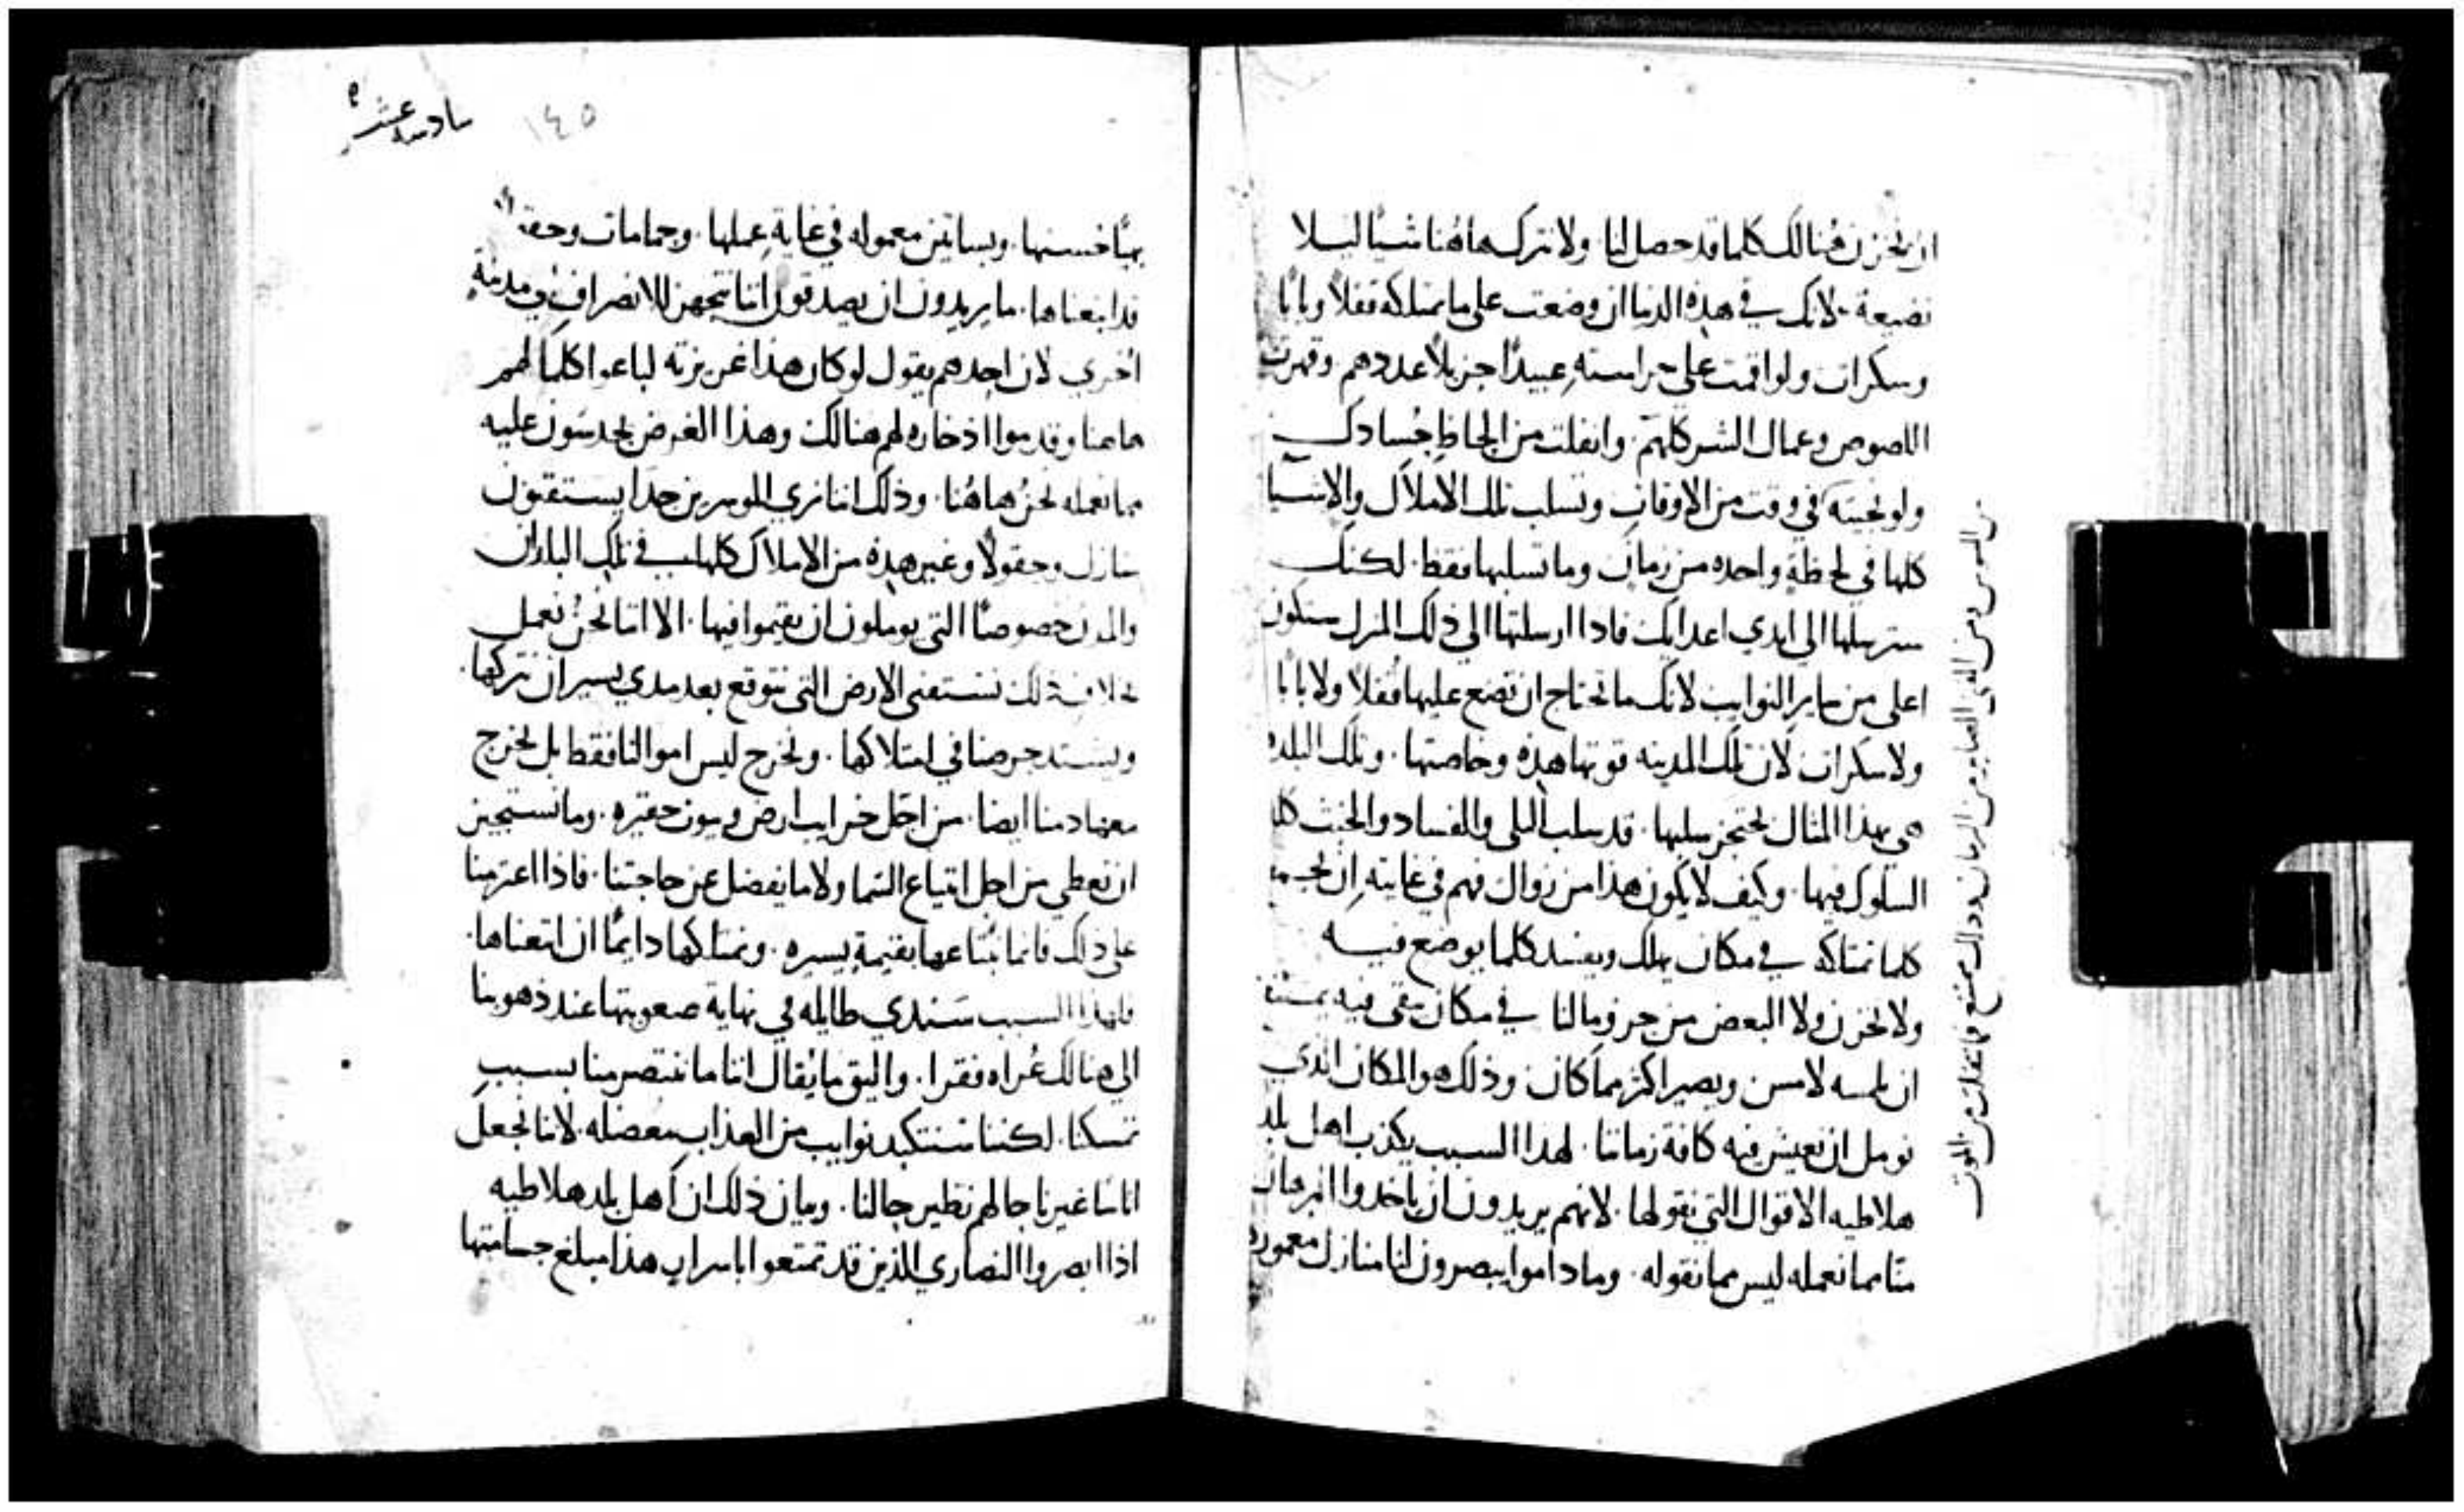 ان نخزن هنالك كلما قد حصل لنا ولا نترك هاهنا شيًا ليلا
نضيعة. لانك في هذه الدنيا ان وضعت على ما تمتلكه قفلاً وبابًا
وسكرات ولو اقمت على حراسته عبيدًا جزيلاً عددهم وقهرت
اللصوص وعمال الشر كلهم. وانفلت من الحاظ حُسادك
في وقت من الاوقات وتسلب تلك الاملاك والاشيا
كلها في لحظة واحده من زمان وما تسلبها فقط. لكنك
سترسلها الى ايدي اعدايك فاذا ارسلتها الى ذلك المنزل ستكون
اعلى من ساير النوايب لانك ما تحتاج ان تضع عليها قفلاً ولا بابًا
ولا سكرات لان تلك المدينه قوتها هذه وخاصتها. وتلك البلده
هي بهذا المثال يحتجز سلبها. قد سلب البلى والفساد والخبث
السلوك فيها. وكيف لا يكون هذا من زوال فهم في غايته ان
كلما نمتلكه في مكان يهلك ويفسد كلما يوضع فيه
ولا نخزن ولا البعض من جزو مالنا في مكان يبقى فيه يمتنع
ان يلمسه لامس ويصير اكثر مما كان وذلك هو المكان الذي
نومل ان نعيش فيه كافة زماننا. لهذا السبب يكذب اهل بلد
هلاطيه الاقوال التي نقولها. لانهم يريدون ان ياخذوا البرهان
منا مما نعمله ليس مما نقوله. وما داموا يبصرون لنا منازل معموره
من السوس ومن اللص الصاير من الزمان وذاك يمتنع فما تنفلت من الموت
سادسه عشر
١٤٥
بهيًا حسنها. وبساتين معموله في غاية عملها. وحمامات وحقولاً
قد ابتعناها. ما يريدون ان يصدقون اننا نتجهز للانصراف الى مدينة
اخرى لان احدهم يقول لو كان هذا غريزته لباعوا كلما لهم
هاهنا وقدموا اذخاره لهم هنالك وهذا الغرض يحدسون عليه
مما نعمله نحن هاهُنا. وذلك اننا نرى الموسرين جدا يستقنون
منازل وحقولاً وغير هذه من الاملاك كلها في تلك البلدان
والمدن خصوصًا التي يوملون ان يقيموا فيها. الا اننا نحن نعمل
بخلاف ذلك نستقنى الارض التي نتوقع بعد مدي يسير ان نتركها.
ويشتد حرصنا في امتلاكها. ونخرج ليس اموالنا فقط بل نخرج
معها دمنا ايضا. من اجل خرايب ارض وبيوت حقيره. وما نستجيز
ان نعطي من اجل ابتياع السما ولا ما يفضل عن حاجتنا. فاذا اعتزمنا
على ذلك فاننا نبتاعها بقيمة يسيره. ونمتلكها دايمًا ان ابتعناها.
فلهذا السبب سَندي طايله في نهاية صعوبتها عند ذهوبنا
الى هنالك عُراه فقرا. واليق ما يُقال اننا ما ننتصر منا بسبب
تمسكنا. لكننا سنتكبد نوايب من العذاب معضله. لاننا نجعل
اناسًا غيرنا حالهم نظير حالنا. وبيان ذلك ان اهل بلد هلاطيه
اذا ابصروا النصارى الذين قد تمتعوا باسرار هذا مبلغ جسامتها